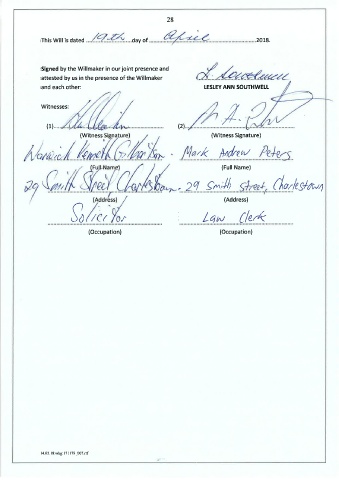 28
This Will is dated 19th day of April 2018.
Signed by the Willmaker in our joint presence and
attested by us in the presence of the Willmaker
and each other:
LESLEY ANN SOUTHWELL
Witnesses:
(1) (2)
(Witness Signature) (Witness Signature)
Warwick Kenneth Mark Andrew Peters
(Full Name) (Full Name)
29 Smith Street Charlestown. 29 Smith Street, Charlestown
(Address) (Address)
Solicitor Law Clerk
(Occupation) (Occupation)